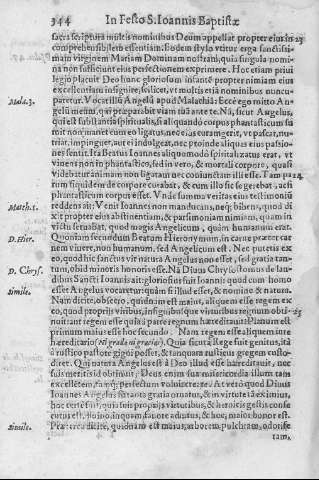 344 In Festo S. Ioannis Baptistæ
sacra scriptura multis nominibus Deum appellat propter eius in 23
comprehensibilem essentiam: Eodem stylo vtitur erga sanctissi-
mam virginem Mariam Dominam nostram, quia singula nomi-
na non sufficiunt eius perfectionem exprimere. Hoc etiam privi
legio placuit Deo hunc gloriosum infantem propter nimiam eius
excellentiam insignire, scilicet, vt multis etiã nominibus nuncu-
Mala. 3.
paretur. Vocat illũ Angelũ apud Malachiã: Ecce ego mitto An-
gelũ meum, qui præparabit viam suã ante te. Nã, sicut Angelus,
qui est substantia spiritualis, si aliquando corpus phantasticum su
mit non manet cum eo ligatus, nec eius curam gerit, vt pascat, nu-
triat, impinguet, aut ei indolgeat, nec proinde aliquas eius passio-
nes sentit. Ita Beatus Ioannes aliquo modo spiritalizatus erat, vt
viueret non in phantastico, sed in vero, & mortali corpore, quasi
videbatur animam non ligatam nec coniunctam illi esse. Tam pa 24
rum siquidem de corpore curabat, & cum illo sic se gerebat, ac si
phantasticum corpus esset. Vnde summa veritas eius testimoniũ
Matth. 1.
reddens ait: Venit Ioannes non manducans, neq; bibens, quod di
xit propter eius abstinentiam, & parsimoniam nimiam, quam in
victu seruabat, quod magis Angelicum, quàm humanum erat.
D. Hier.
Quoniam secundum Beatum Hieronymum, in carne præter car
nem viuere, non humanum, sed Angelicum est. Nec putetis ex
eo, quod hic sanctus vir natura Angelus non esset, sed gratia tan-
D. Chrys.
tum, obid minoris honoris esse. Nã Diuus Chrysostomus de lau-
dibus Sancti Ioannis ait: gloriosius fuit Ioanni quod cum homo
Simile.
esset Angelus vocaretur quàm si illud esset, & nomine & natura.
Nam dicite, obsecro, quidnam est maius, aliquem esse regem ex
eo, quod proprijs viribus, insignibusque virtutibus regnum obti- 25
nuit: ant regem esse quia à patre regnum hæreditauit? Planum est
primum maius esse hoc secundo. Nam regem esse aliquem iure
hæreditario
Quia sicut à Rege fuit genitus, ità
à rustico pastore gigni posset, & tanquam rusticus gregem custo-
diret. Qui natura Angelus est à Deo illud esse hæreditauit, nec
suis meritis id obtinuit; Deus enim sua misericordia illum tam
excellẽtem, tamq; perfectum voluit creare. At verò quod Diuus
Ioannes Angelus sit tanto gratia ornatus, & in virtute tã eximius,
hoc certè fuit, quia suis proprijs virtutibus, & heroicis gestis conse
cutus est. Homo inquam fauore adeptus, & hoc, maior honor est.
Simile.
Præterea dicite, quidnam est maius, arborem pulchram, odorife
ram,